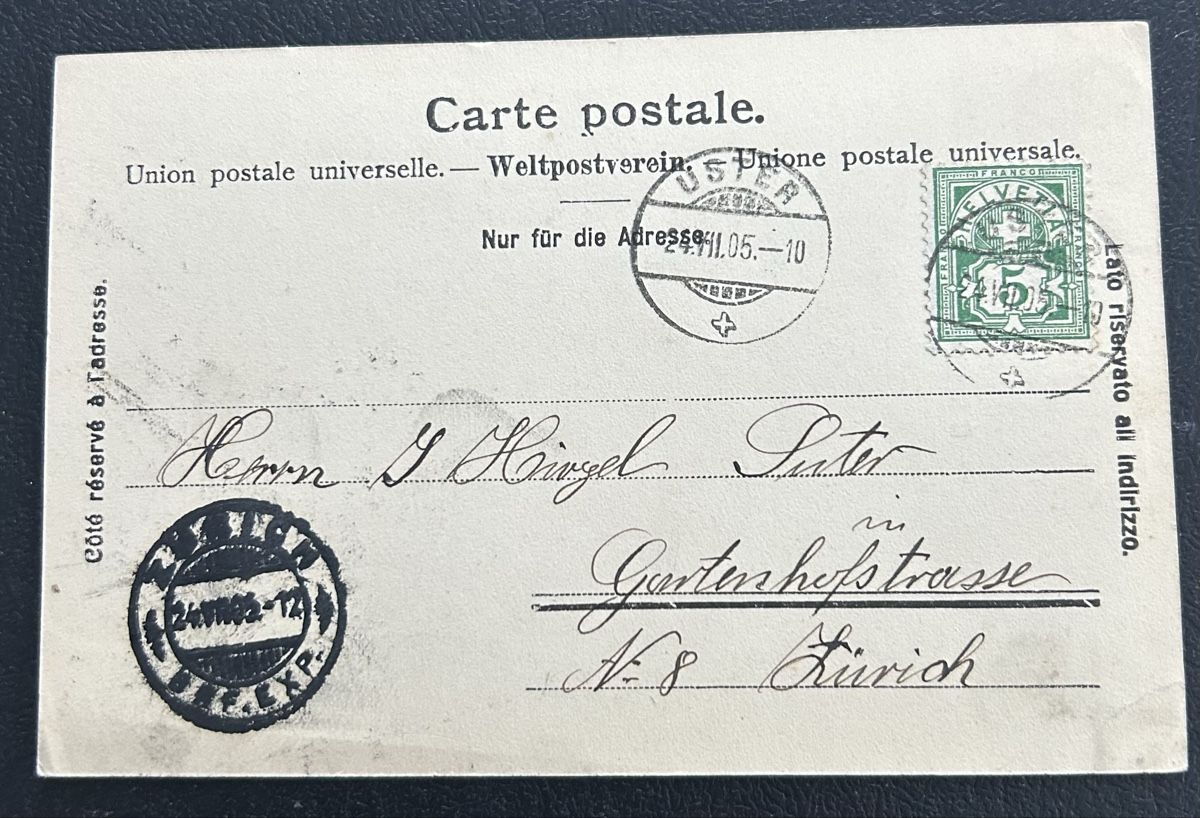 Carte postale.
Union postale universelle. — Weltpostverein. — Unione postale universale.
Nur für die Adresse.
Côté réservé à l'adresse.
Lato riservato all indirizzo.
USTER
24.VII.05.—10
FRANCO
FRANCO
FRANCO
HELVETIA
5
Herrn J Hirzel Suter
in
Gartenhofstrasse
No 8 Zürich
ZÜRICH
24.VII.05.-12
BRF.EXP.